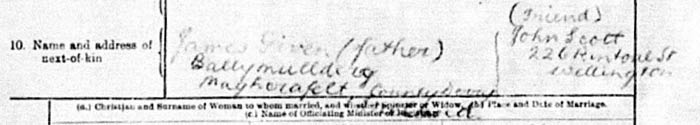 (Friend)
10. Name and address of
next-of-kin
James Given (father)
Ballymullderg
Magherafelt County Derry
Ireland
John Scott
226 Rintoul St
Wellington
(a.) Christian and Surname of Woman to whom married, and whether Spinster or Widow. (b.) Place and Date of Marriage.
(c.) Name of Officiating Minister or Registrar